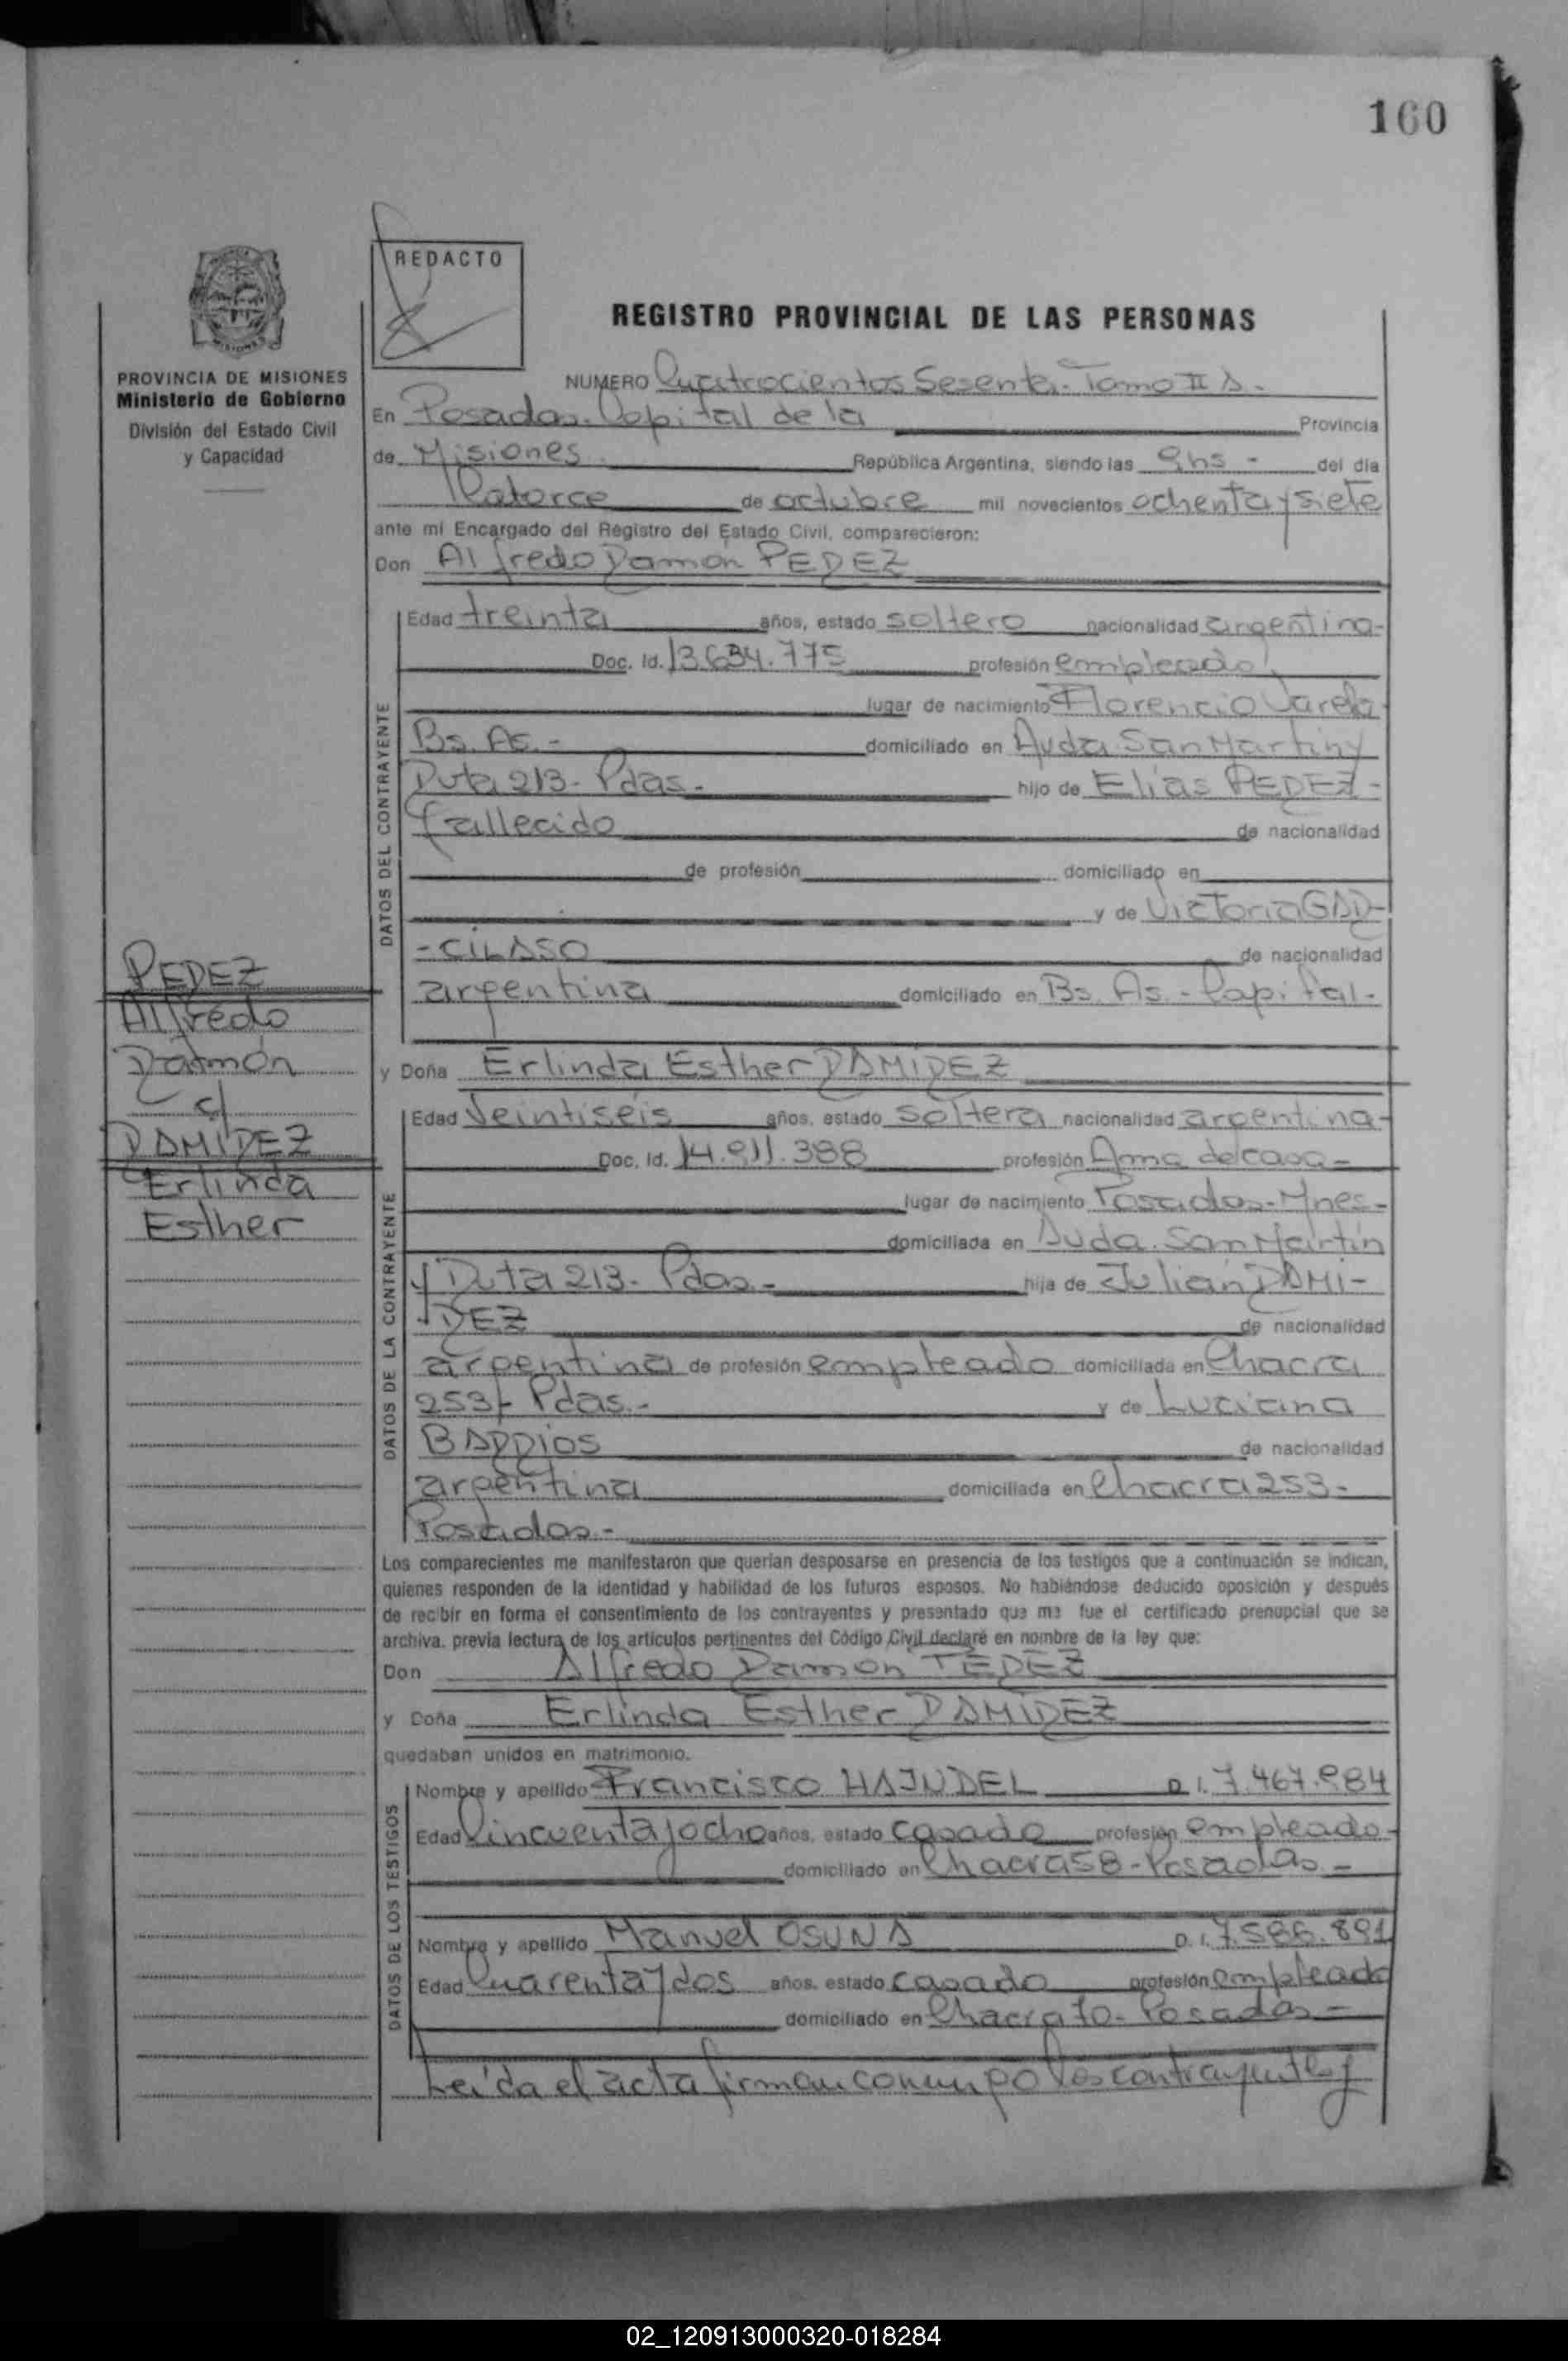 160
REDACTO
REGISTRO PROVINCIAL DE LAS PERSONAS
PROVINCIA DE MISIONES
Ministerio de Gobierno
División del Estado Civil
y Capacidad
NUMERO Cuatrocientos Sesenta. Tomo II A.
En Posadas. Capital de la Provincia
de Misiones República Argentina, siendo las 9 hs - del día
Catorce de octubre mil novecientos ochenta y siete
ante mí Encargado del Registro del Estado Civil, comparecieron:
Don Alfredo Ramón PEREZ
DATOS DEL CONTRAYENTE
Edad treinta años, estado soltero nacionalidad argentina-
Doc. Id. 13.634.775 profesión empleado
lugar de nacimiento Florencio Varela
Bs. As.- domiciliado en Avda San Martin y
Ruta 213- Pdas.- hijo de Elías PEREZ-
fallecido de nacionalidad
de profesión domiciliado en
y de Victoria GAR-
-CILASO de nacionalidad
argentina domiciliado en Bs. As.- Capital.-
y Doña Erlinda Esther RAMIREZ
DATOS DE LA CONTRAYENTE
Edad Veintiseis años, estado soltera nacionalidad argentina-
Doc. Id. 14.911.388 profesión Ama de casa-
lugar de nacimiento Posadas-Mnes-
domiciliada en Avda. San Martín
y Ruta 213- Pdas.- hija de Julián RAMI-
-REZ de nacionalidad
argentina de profesión empleado domiciliada en Chacra
253- Pdas.- y de Luciana
BARRIOS de nacionalidad
argentina domiciliada en Chacra 253-
Posadas.-
Los comparecientes me manifestaron que querían desposarse en presencia de los testigos que a continuación se indican,
quienes responden de la identidad y habilidad de los futuros esposos. No habiéndose deducido oposición y después
de recibir en forma el consentimiento de los contrayentes y presentado que me fue el certificado prenupcial que se
archiva, previa lectura de los artículos pertinentes del Código Civil declaré en nombre de la ley que:
Don Alfredo Ramón PEREZ
y Doña Erlinda Esther RAMIREZ
quedaban unidos en matrimonio.
DATOS DE LOS TESTIGOS
Nombre y apellido Francisco HAINDEL D.I. 7.467.984
Edad Cincuenta y ocho años, estado casado profesión empleado-
domiciliado en Chacra 58-Posadas.-
Nombre y apellido Manuel OSUNA D.I. 7.586.891
Edad Cuarenta y dos años, estado casado profesión empleado
domiciliado en Chacra 70- Posadas-
Leída el acta firman conmigo los contrayentes y
PEREZ
Alfredo
Ramón
c/
RAMIREZ
Erlinda
Esther
02_120913000320-018284